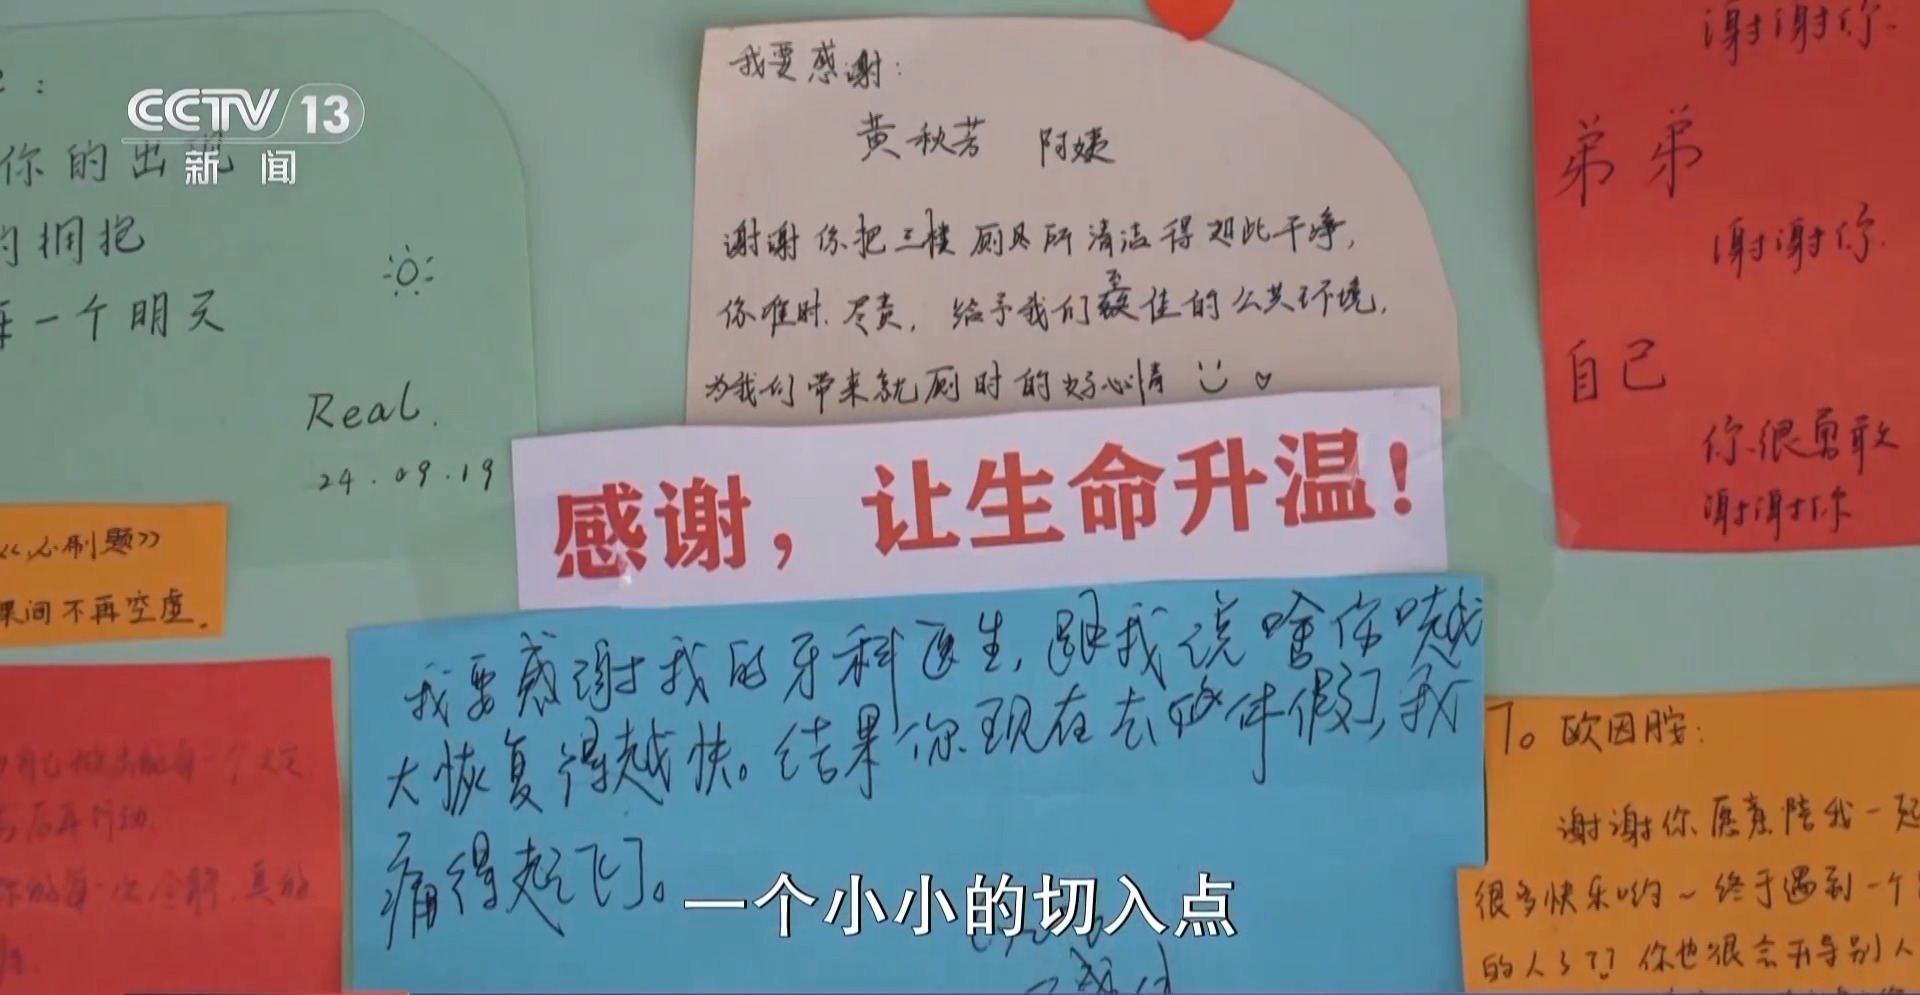 CCTV 13
新闻
你的出现
的拥抱
每一个明天
Real.
24.09.19
我要感谢：
黄秋芳 阿姨
谢谢你把三楼厕所清洁得如此干净，
你准时.尽责，给予我们至佳的公共环境，
为我们带来就厕时的好心情
谢谢你.
弟弟
谢谢你.
自己
你很勇敢
谢谢你
感谢，让生命升温！
《必刷题》
课间不再空虚.
我要感谢我的牙科医生，跟我说啥你嘴越
大恢复得越快。结果你现在去休假了，我
痛得起飞了。
To 欧因胺：
谢谢你愿意陪我一起
很多快乐哟～终于遇到一个
的人了?? 你也很会开导别人
一个小小的切入点